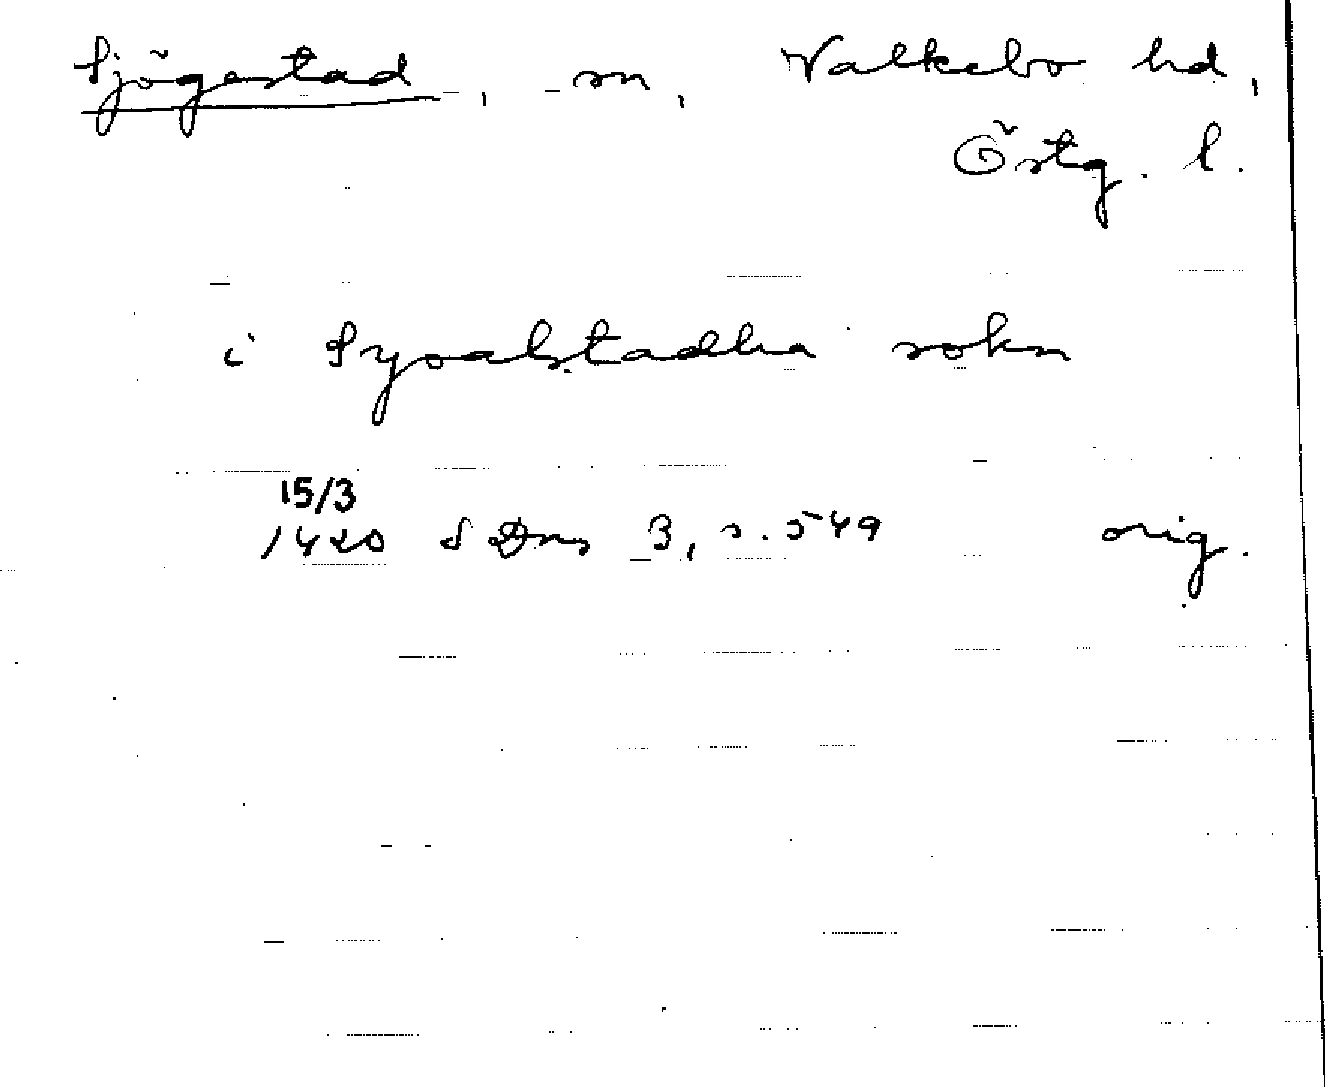 Sjögestad, sn, Valkebo hd,
Östg. l.
i Syoalstadha sokn
15/3
1420 SDns 3, s. 549 orig.